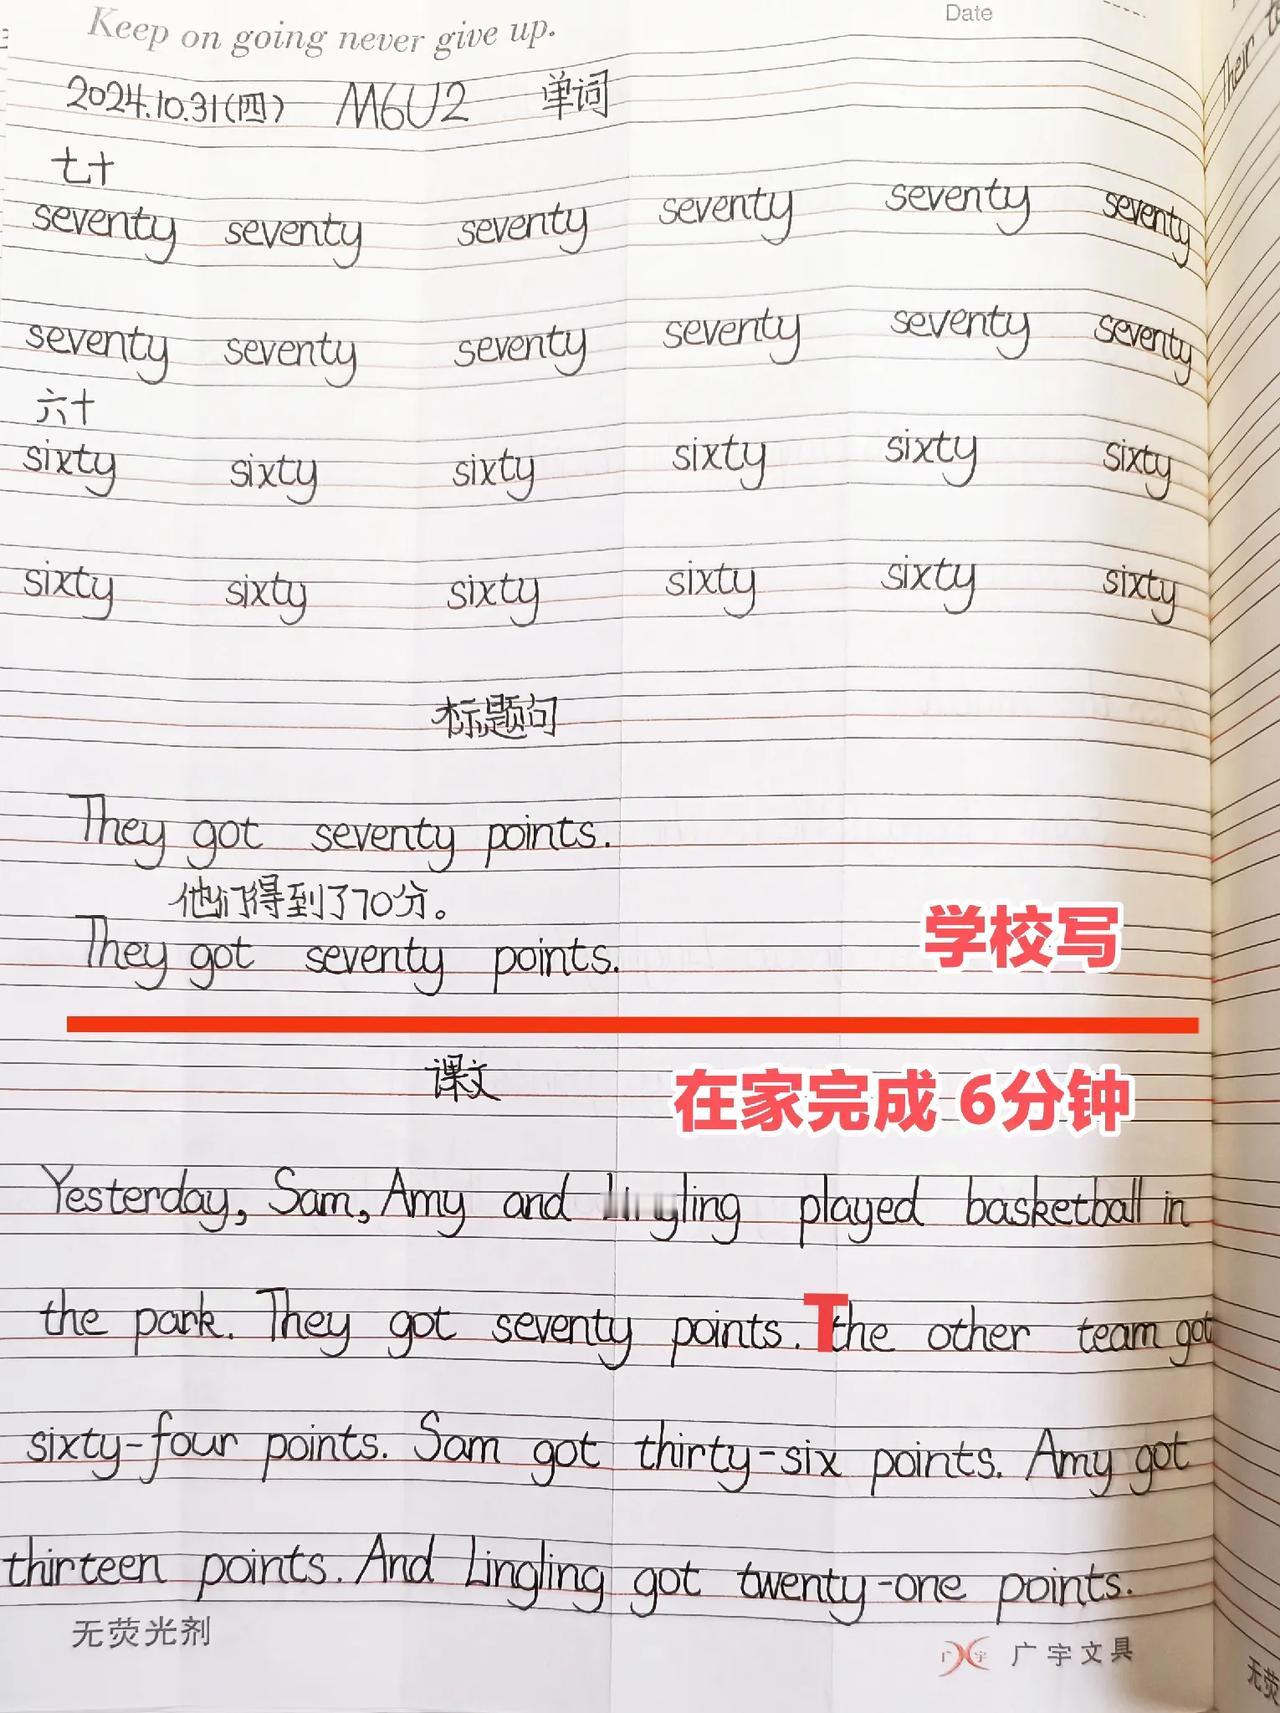 Keep on going never give up.
Date
2024.10.31(四) M6U2 单词
七十
seventy seventy seventy seventy seventy seventy
seventy seventy seventy seventy seventy seventy
六十
sixty sixty sixty sixty sixty sixty
sixty sixty sixty sixty sixty sixty
标题句
They got seventy points.
他们得到了70分。
They got seventy points.
学校写
课文
在家完成 6分钟
Yesterday, Sam, Amy and Lingling played basketball in
the park. They got seventy points. The other team got
sixty-four points. Sam got thirty-six points. Amy got
thirteen points. And Lingling got twenty-one points.
无荧光剂
广宇 广宇文具
Their
无荧